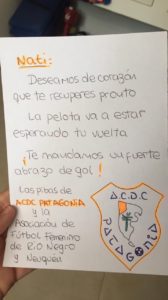 Nati:
Deseamos de corazón
que te recuperes pronto
La pelota va a estar
esperando tu vuelta
¡Te mandamos un fuerte
abrazo de gol!
Las pibas de
ACDC PATAGONIA
y la
Asociación de
Fútbol Femenino
de Río Negro
y Neuquén
A.C.D.C
PATAGONIA